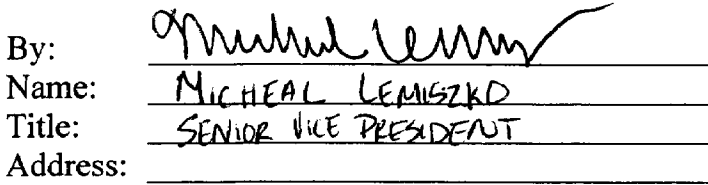 By:
Name: MICHEAL LEMISZKO
Title: SENIOR VICE PRESIDENT
Address: